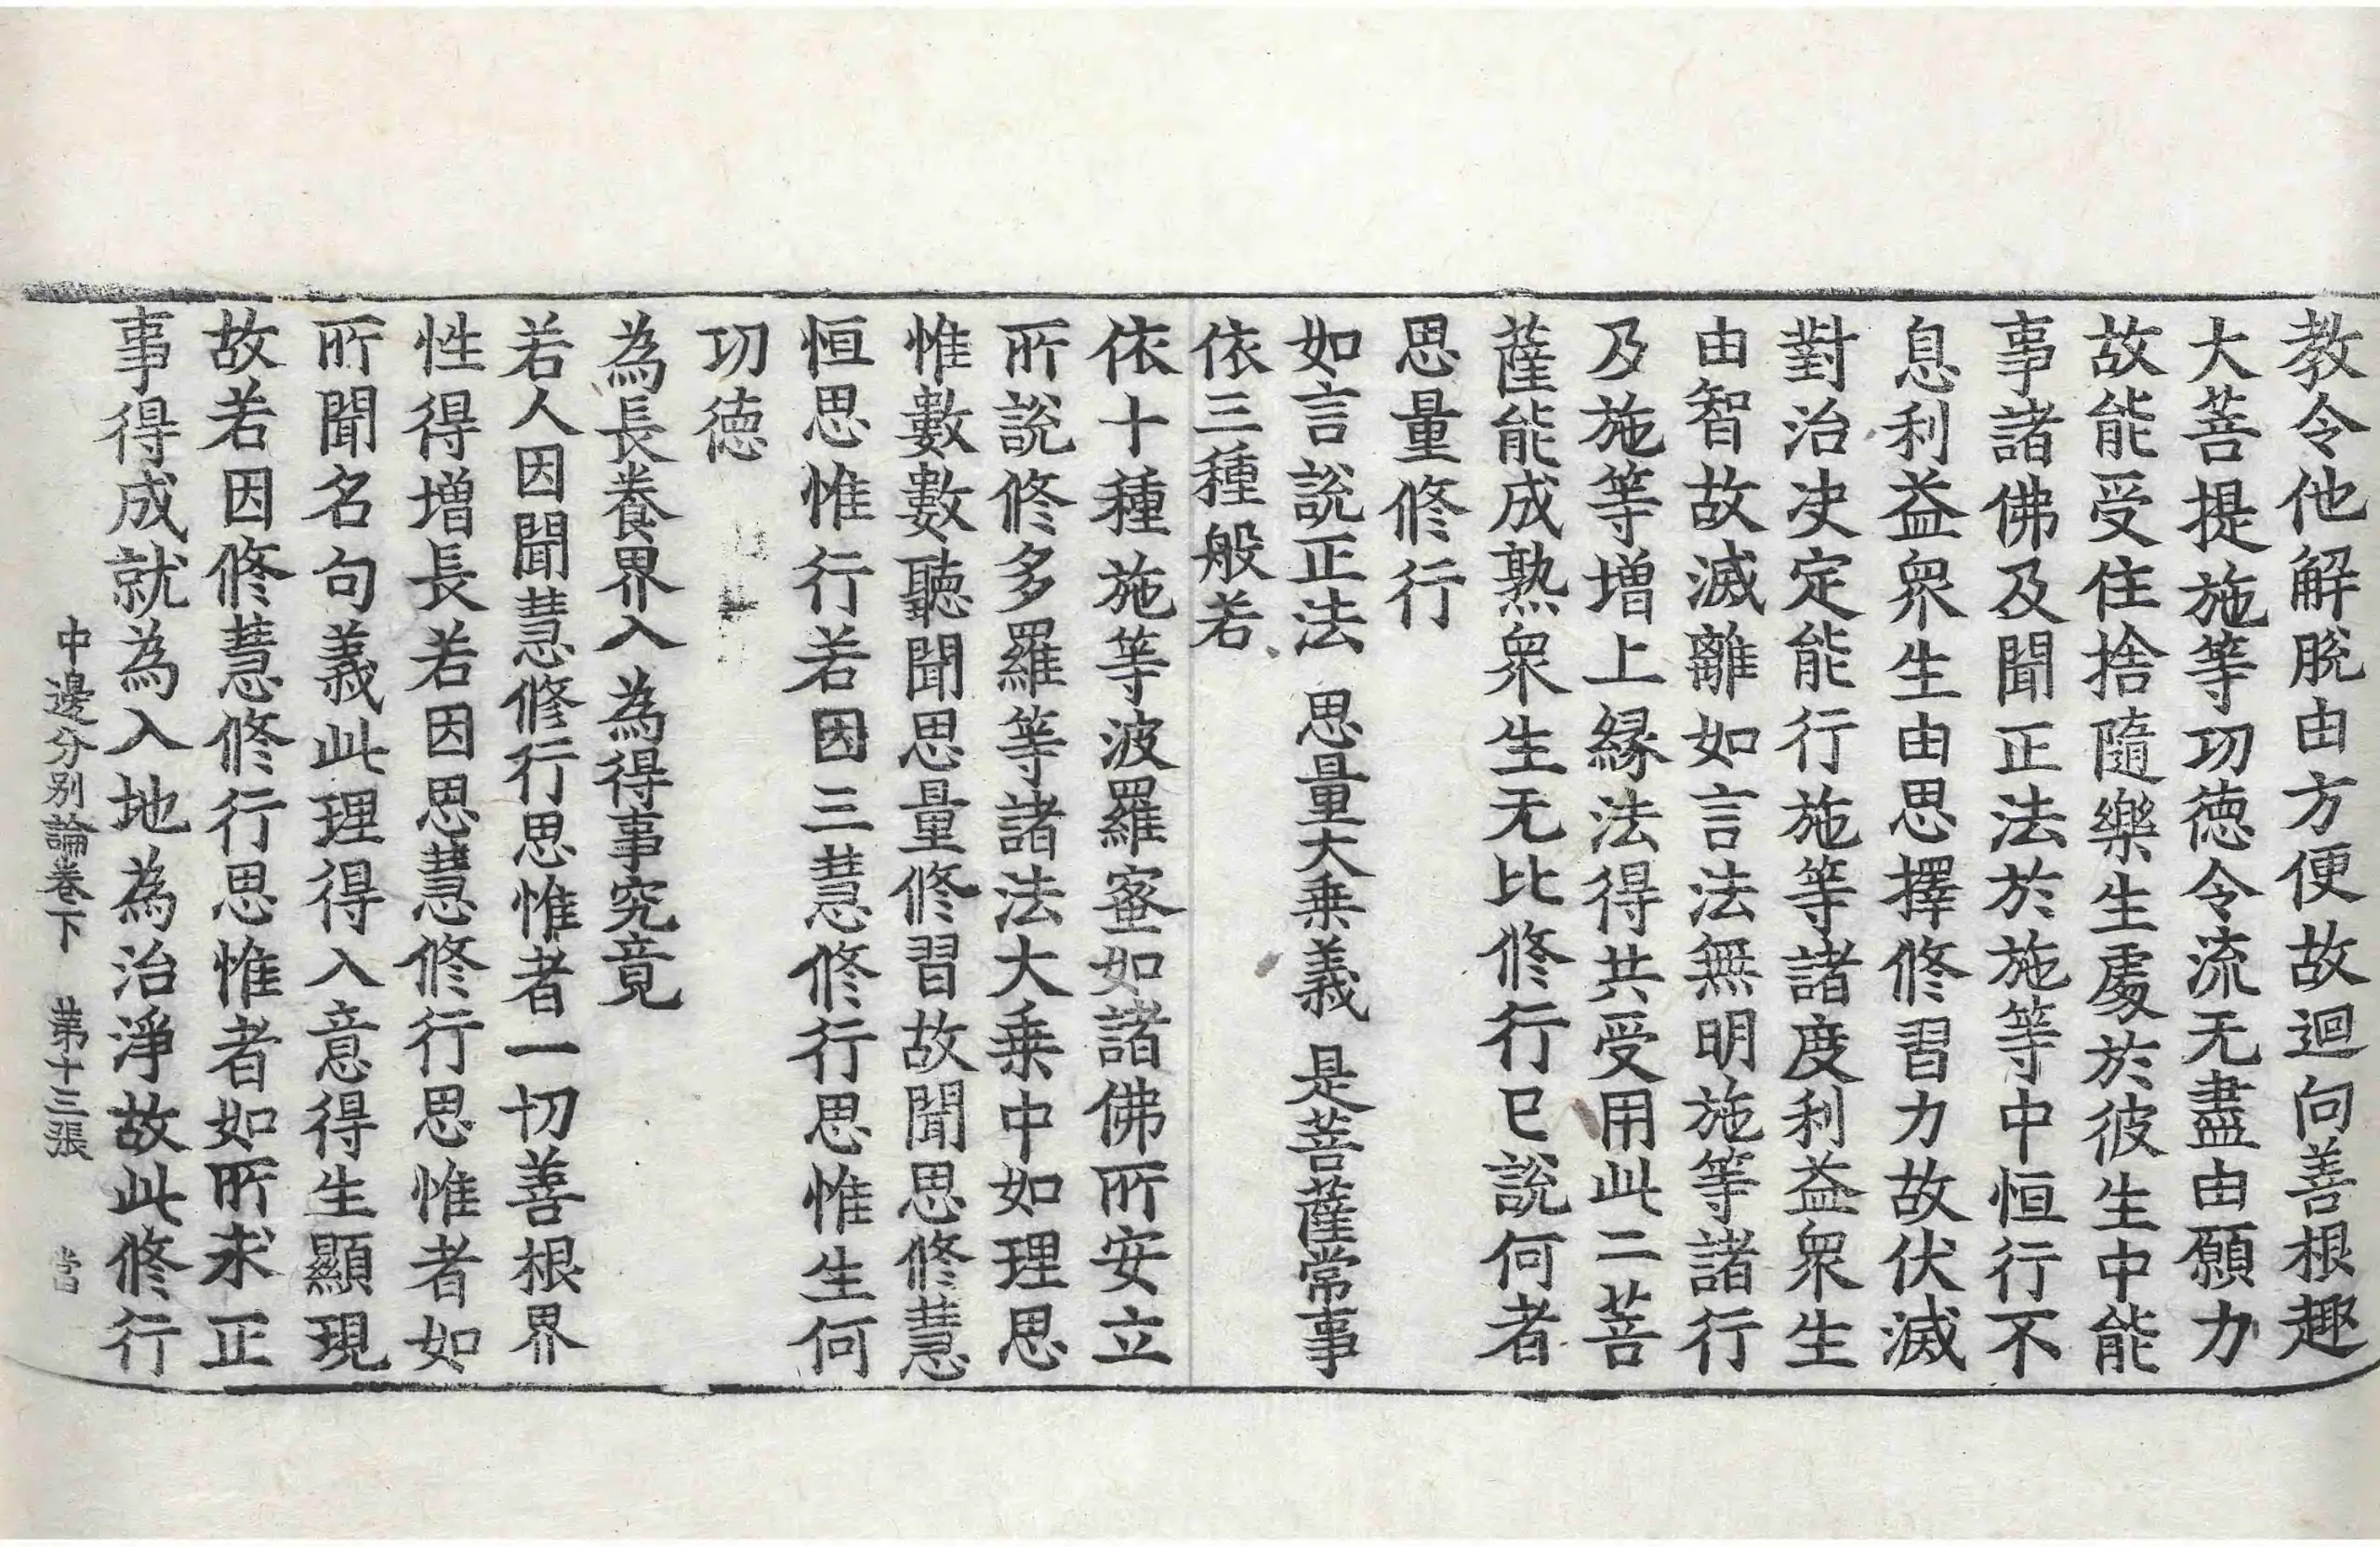 教令他解脫由方便故迴向善根趣
大菩提施等功德令流无盡由願力
故能受住捨隨樂生處於彼生中能
事諸佛及聞正法於施等中恒行不
息利益衆生由思擇修習力故伏滅
對治决定能行施等諸度利益衆生
由智故滅離如言法無明施等諸行
及施等增上緣法得共受用此二菩
薩能成熟衆生无比修行已說何者
思量修行
如言說正法　思量大乘義　是菩薩常事
依三種般若
依十種施等波羅蜜如諸佛所安立
所說修多羅等諸法大乘中如理思
惟數數聽聞思量修習故聞思修慧
恒思惟行若因三慧修行思惟生何
功德
為長養界入　為得事究竟
若人因聞慧修行思惟者一切善根界
性得增長若因思慧修行思惟者如
所聞名句義此理得入意得生顯現
故若因修慧修行思惟者如所求正
事得成就為入地為治淨故此修行
中邊分別論卷下　第十三張　當